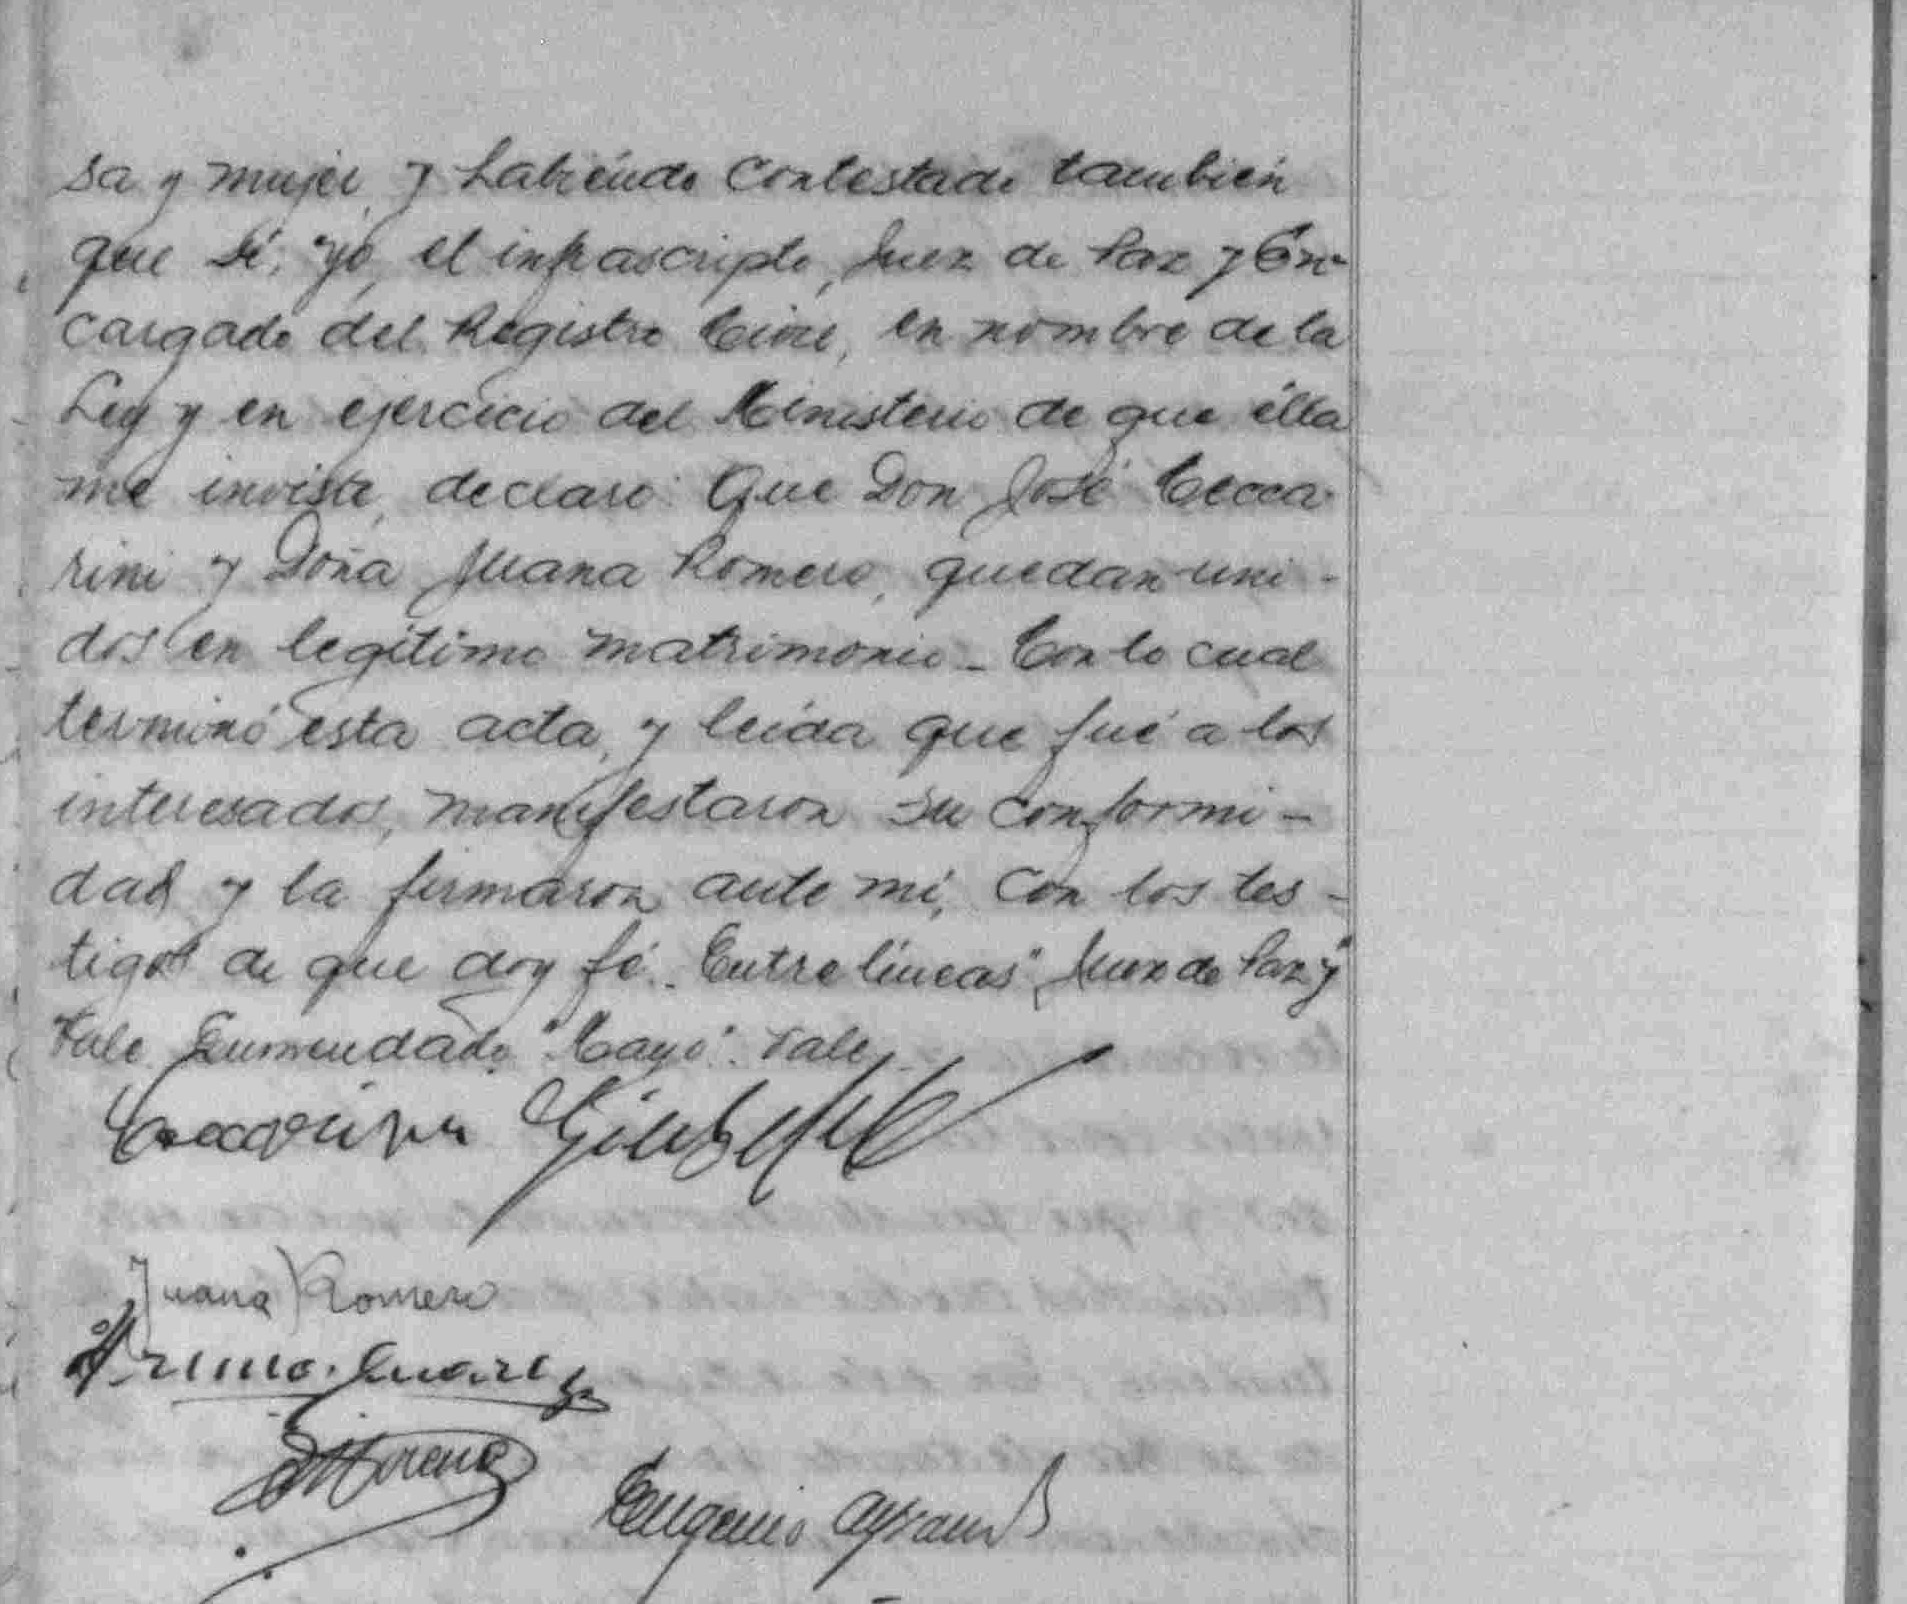 sa y mujer, y habiendo contestado también
que sí, yo, el infrascripto, Juez de Paz y En-
cargado del Registro Civil, en nombre de la
Ley y en ejercicio del Ministerio de que élla
me inviste, declaro: Que Don José Cecca-
rini y Doña Juana Romero, quedan uni-
dos en legítimo matrimonio - Con lo cual
terminó esta acta, y leída que fué a los
interesados, manifestaron su conformi-
dad y la firmaron ante mí, con los tes-
tigos de que doy fé. Entre líneas "Juez de Paz y"
Vale Enmendado "Mayo". Vale
Ceccarini Giuseppe
Juana Romero
Suarez
Moreno
Eugenio